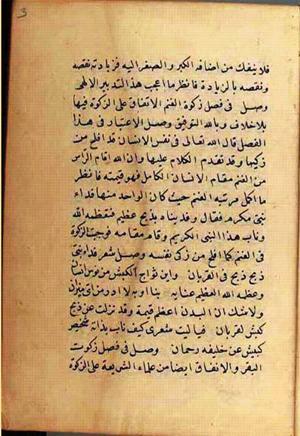 فلا ينفك من اضافه الكبر والصغر اليه فزيادته نقصه
ونقصه بالزيادة فانظر ما اعجب هذا التدبير الالهى
وصل فى فصل زكوة الغنم الاتفاق على الزكوة فيها
بلا خلاف وبالله التوفيق وصل الاعتبار فى هذا
الفصل قال الله تعالى فى نفس الانسان قد افلح من
زكيها وقد تقدم الكلام عليها وان الله اقام الرأس
من الغنم مقام الانسان الكامل فهو قيمته فانظر
ما اكمل مرتبه الغنم حيث كان الواحد منها فداء
نبى مكرم فقال وفديناه بذبح عظيم فعظمه الله
وناب هذا النبى الكريم وقام مقامه فوجبت الزكوة
فى الغنم كما افلح من زكى نفسه وصل شعر فداء نبى
ذبح ذبح فى القربان واين ثواج الكبش من نوس انسان
وعظمه الله العظيم عنايه بنا او به لا ادر من اى ميزان
ولا شك ان البدن اعظم قيمة وقد نزلت عن ذبح
كبش لقربان فيا ليت شعرى كيف ناب بذاته شخيص
كبيش عن خليفه رحمان وصل فى فصل زكوت
البقر والاتفاق ايضا من علماء الشريعة على الزكوة